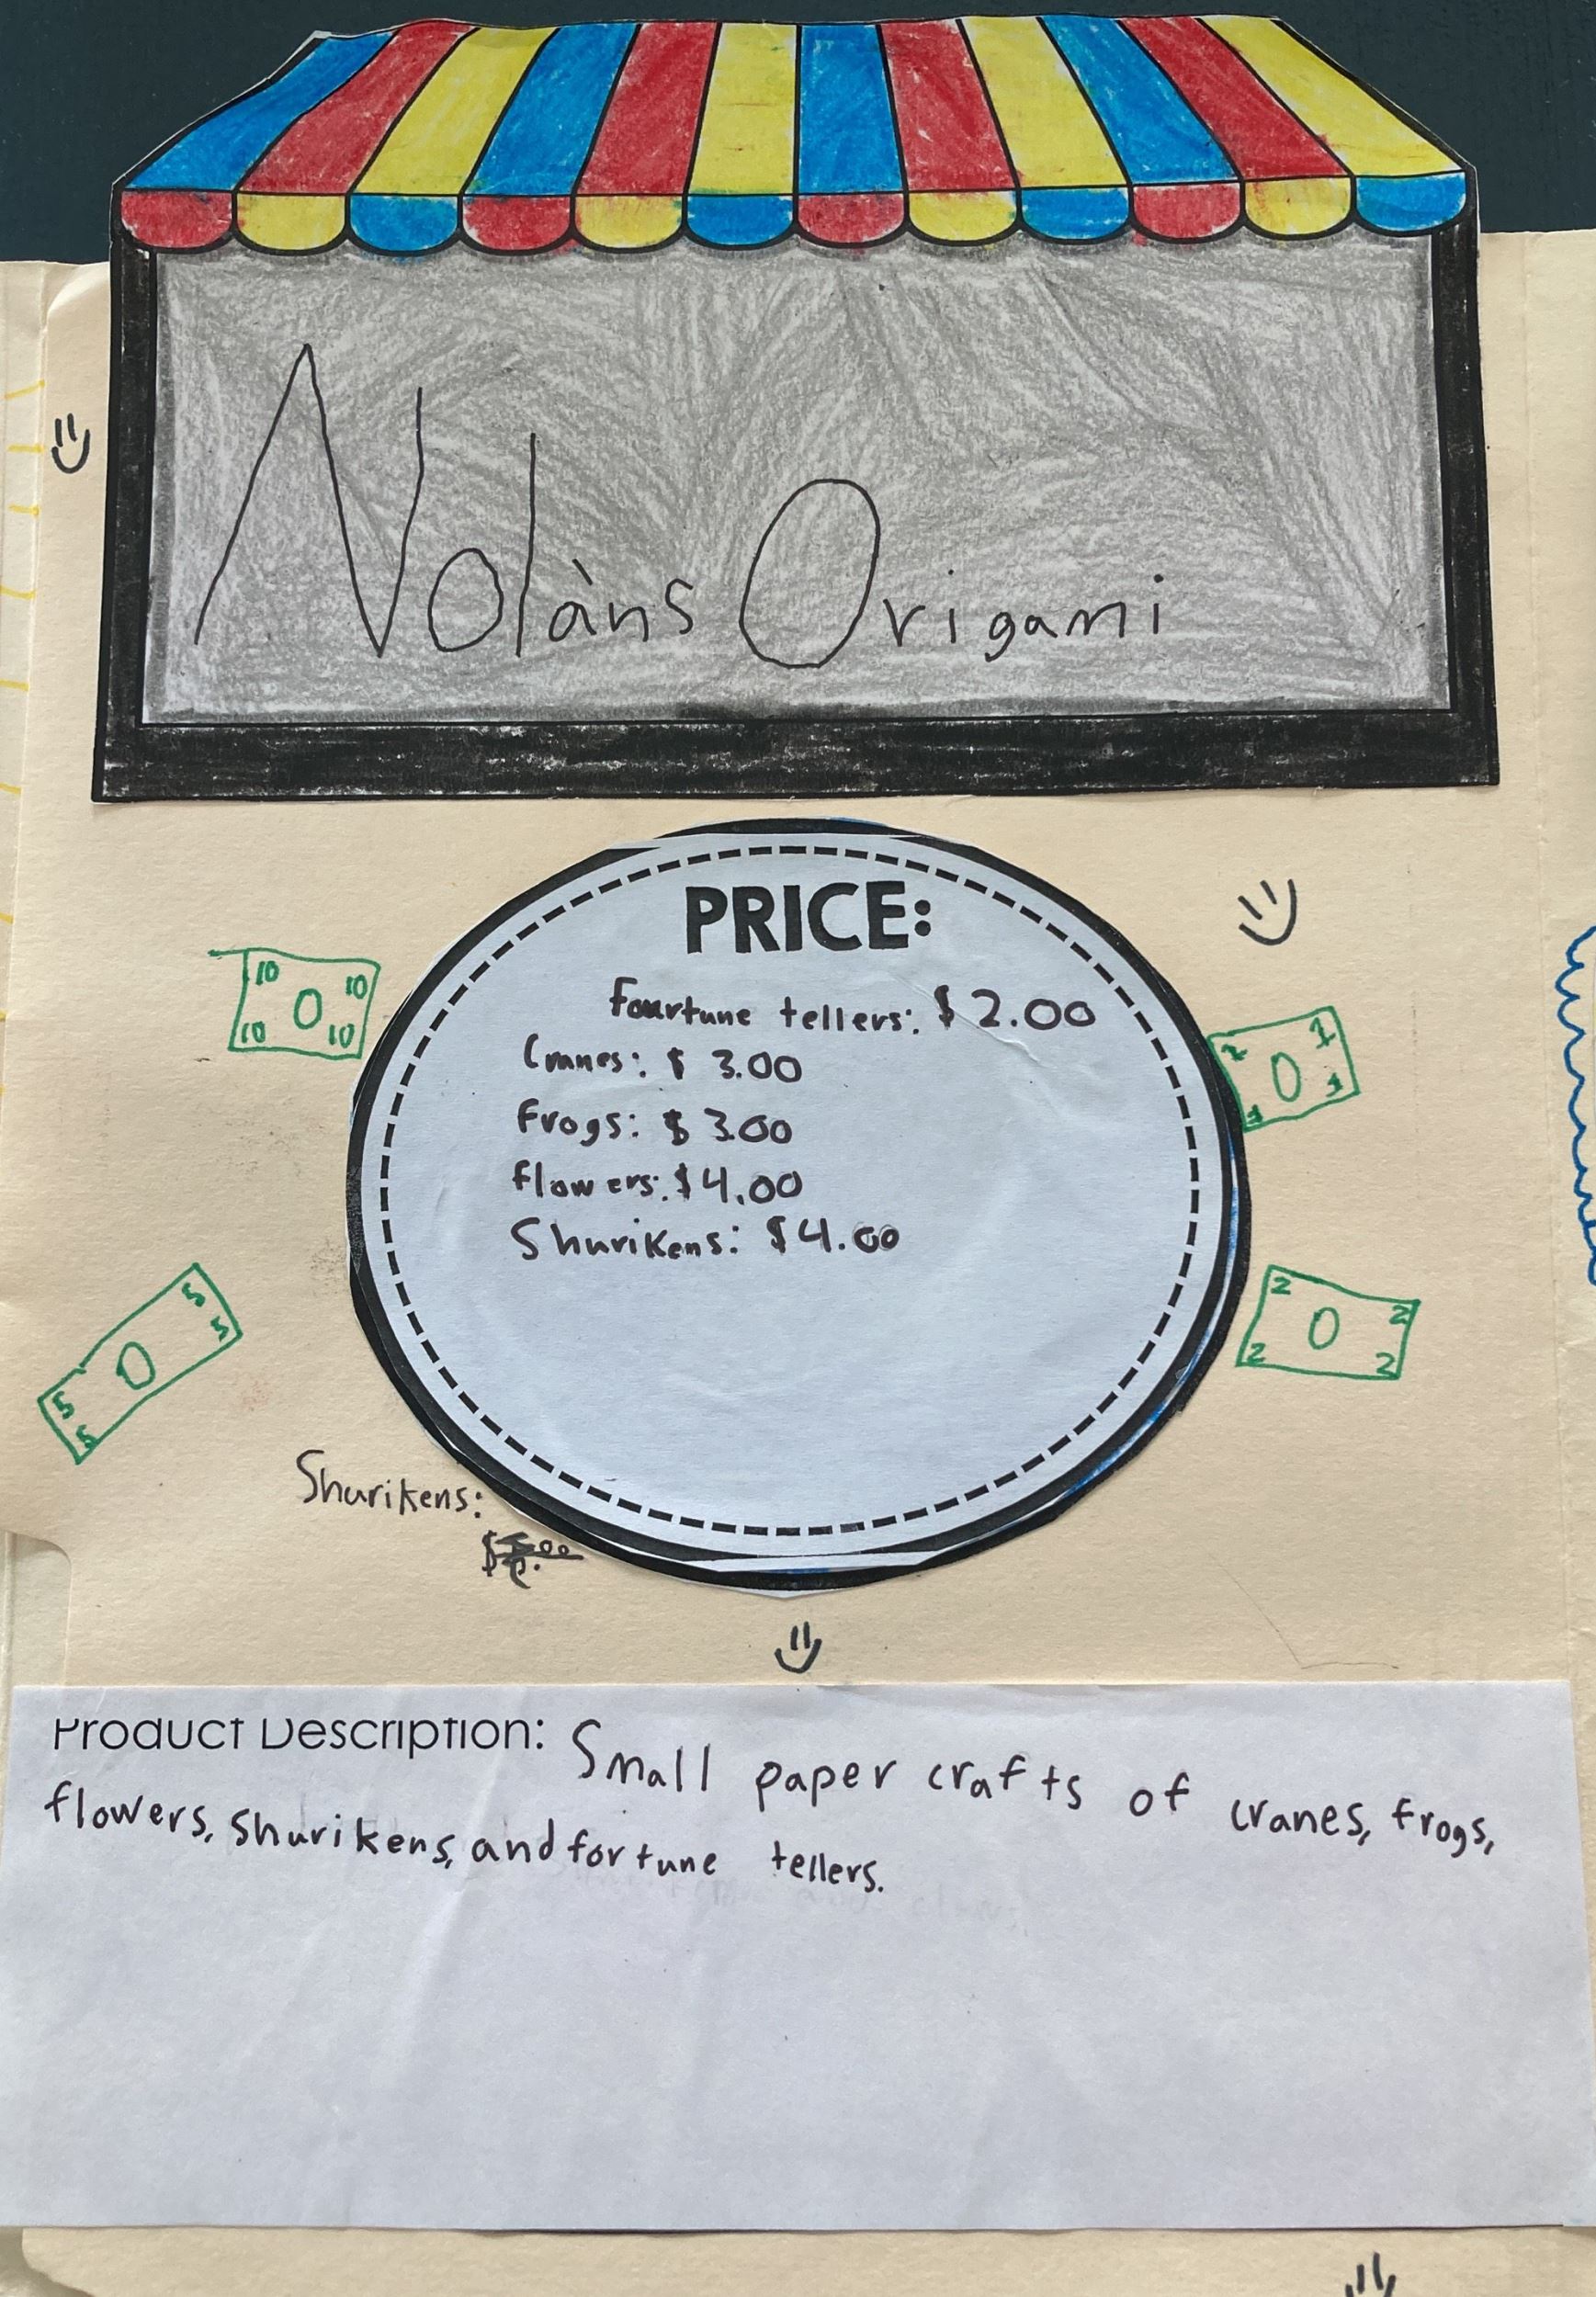 Nolàns Origami
PRICE:
Fourtune tellers: $2.00
Cranes: $ 3.00
10 10
0
10 10
1 1
0
1 1
Frogs: $ 3.00
flowers: $4.00
Shurikens: $4.00
5
5
0
5
5
2 2
0
2 2
Shurikens:
Product Description: Small paper crafts of cranes, frogs,
flowers, shurikens, and fortune tellers.